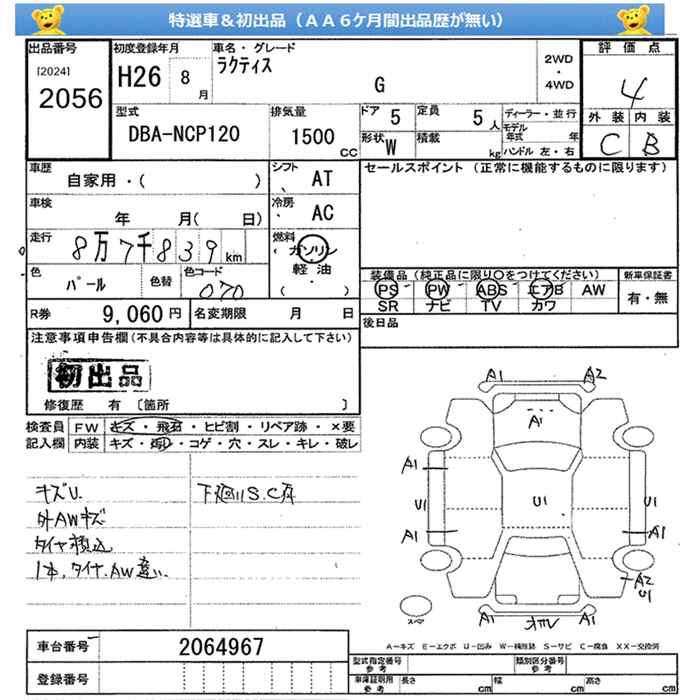 特選車＆初出品（ＡＡ６ケ月間出品歴が無い）
出品番号
[2024]
2056
初度登録年月
H26 8月
車名・グレード
ラクティス
G
2WD
・
4WD
評価点
4
外装 内装
C B
型式
DBA-NCP120
排気量
1500 cc
ドア 5
定員 5人
形状 W
積載 kg
ディーラー・並行
モデル年式 年
ハンドル 左・右
車歴
自家用・( )
シフト
AT
セールスポイント（正常に機能するものに限ります）
車検
年 月( 日)
冷房
AC
走行
8万7千839km
燃料
ガソリン
軽油
( )
色
パール
色替
色コード
070
装備品（純正品に限り○をつけてください）
新車保証書
PS PW ABS エアB AW
有・無
SR ナビ TV カワ
R券 9,060円
名変期限 月 日
後日品
注意事項申告欄(不具合内容等は具体的に記入して下さい)
初出品
修復歴 有 〔箇所 〕
検査員
記入欄
FW キズ・飛石・ヒビ割・リペア跡・×要
内装 キズ・・コゲ・穴・スレ・キレ・破レ
キズU.
下廻りS.C有
外AWキズ
タイヤ積込
1本,タイヤ.AW違い
A1 A2
A1
A1
U1 U1 U1
A1 A1
A2
U1
A1 A1
スペア
A=キズ E=エクボ U=凹み W=補修跡 S=サビ C=腐食 XX=交換済
車台番号
2064967
登録番号
型式指定番号
参考
類別区分番号
参考
車庫証明用
参考
長さ cm
幅 cm
高さ cm